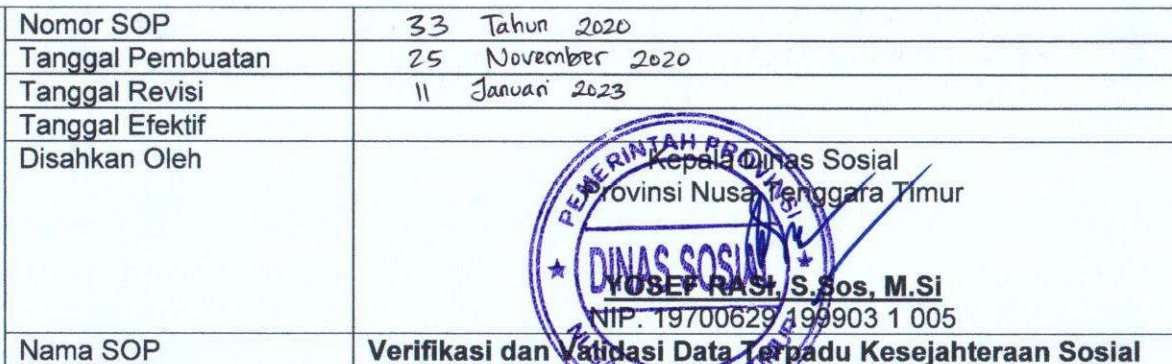 Nomor SOP 33 Tahun 2020
Tanggal Pembuatan 25 November 2020
Tanggal Revisi 11 Januari 2023
Tanggal Efektif
Disahkan Oleh Kepala Dinas Sosial
Provinsi Nusa Tenggara Timur
PEMERINTAH PROVINSI
DINAS SOSIAL
YOSEF RASI, S.Sos, M.Si
NIP. 19700629 199903 1 005
Nama SOP Verifikasi dan Validasi Data Terpadu Kesejahteraan Sosial